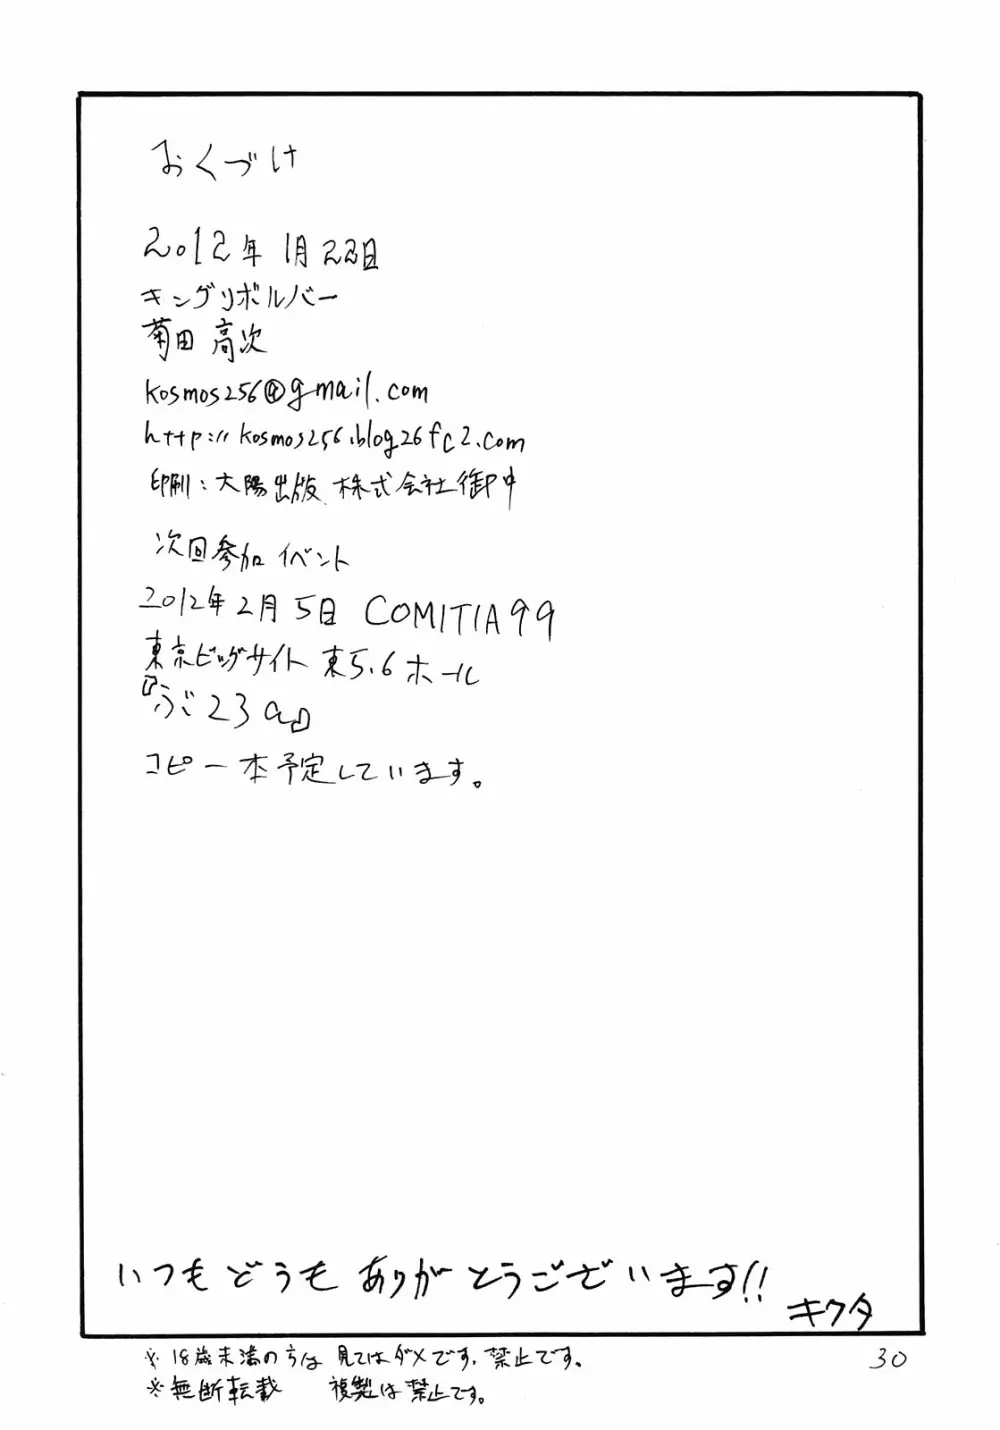 おくづけ
2012年1月22日
キングリボルバー
菊田 高次
kosmos256@gmail.com
http://kosmos256.blog26fc2.com
印刷:大陽出版 株式会社御中
次回参加イベント
2012年2月5日 COMITIA99
東京ビッグサイト 東5.6ホール
『ふご23a』
コピー本予定しています。
いつもどうもありがとうございます!!
キクタ
※18歳未満の方は見てはダメです,禁止です。
30
※無断転載 複製は禁止です。